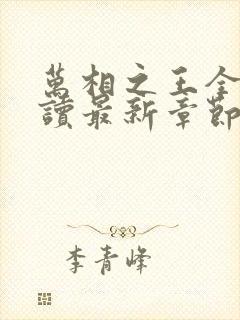 萬相之王全
讀最新章節
李青峰